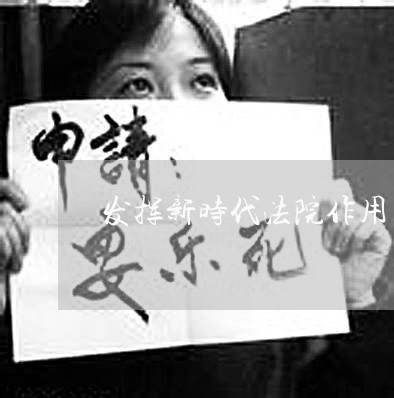 申請：
发挥新時代法院作用
安乐死